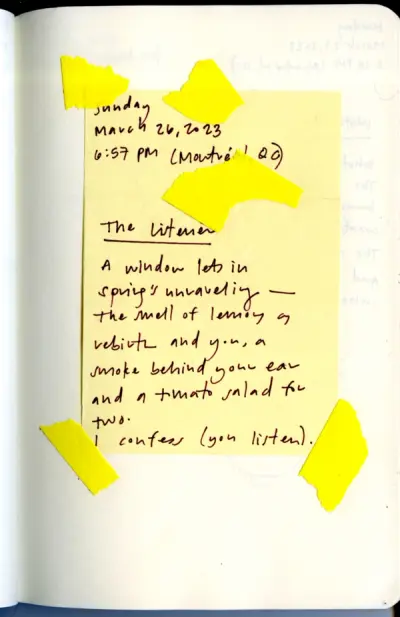 Sunday
March 26, 2023
6:57 PM (Montréal QC)
The Listener
A window lets in
spring's unraveling —
the smell of lemony
rebirth and you, a
smoke behind your ear
and a tomato salad for
two.
I confess (you listen).